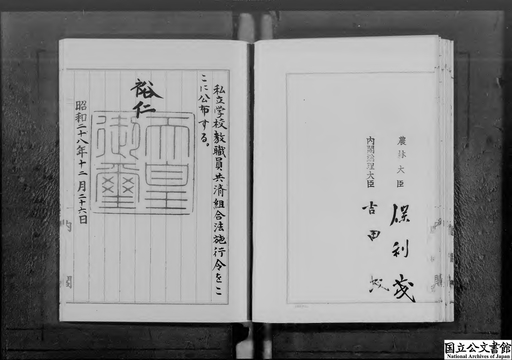 農林大臣 保利茂
内閣総理大臣 吉田茂
私立学校教職員共済組合法施行令をこ
こに公布する。
裕仁
天皇
御璽
昭和二十八年十二月二十六日
国立公文書館
National Archives of Japan